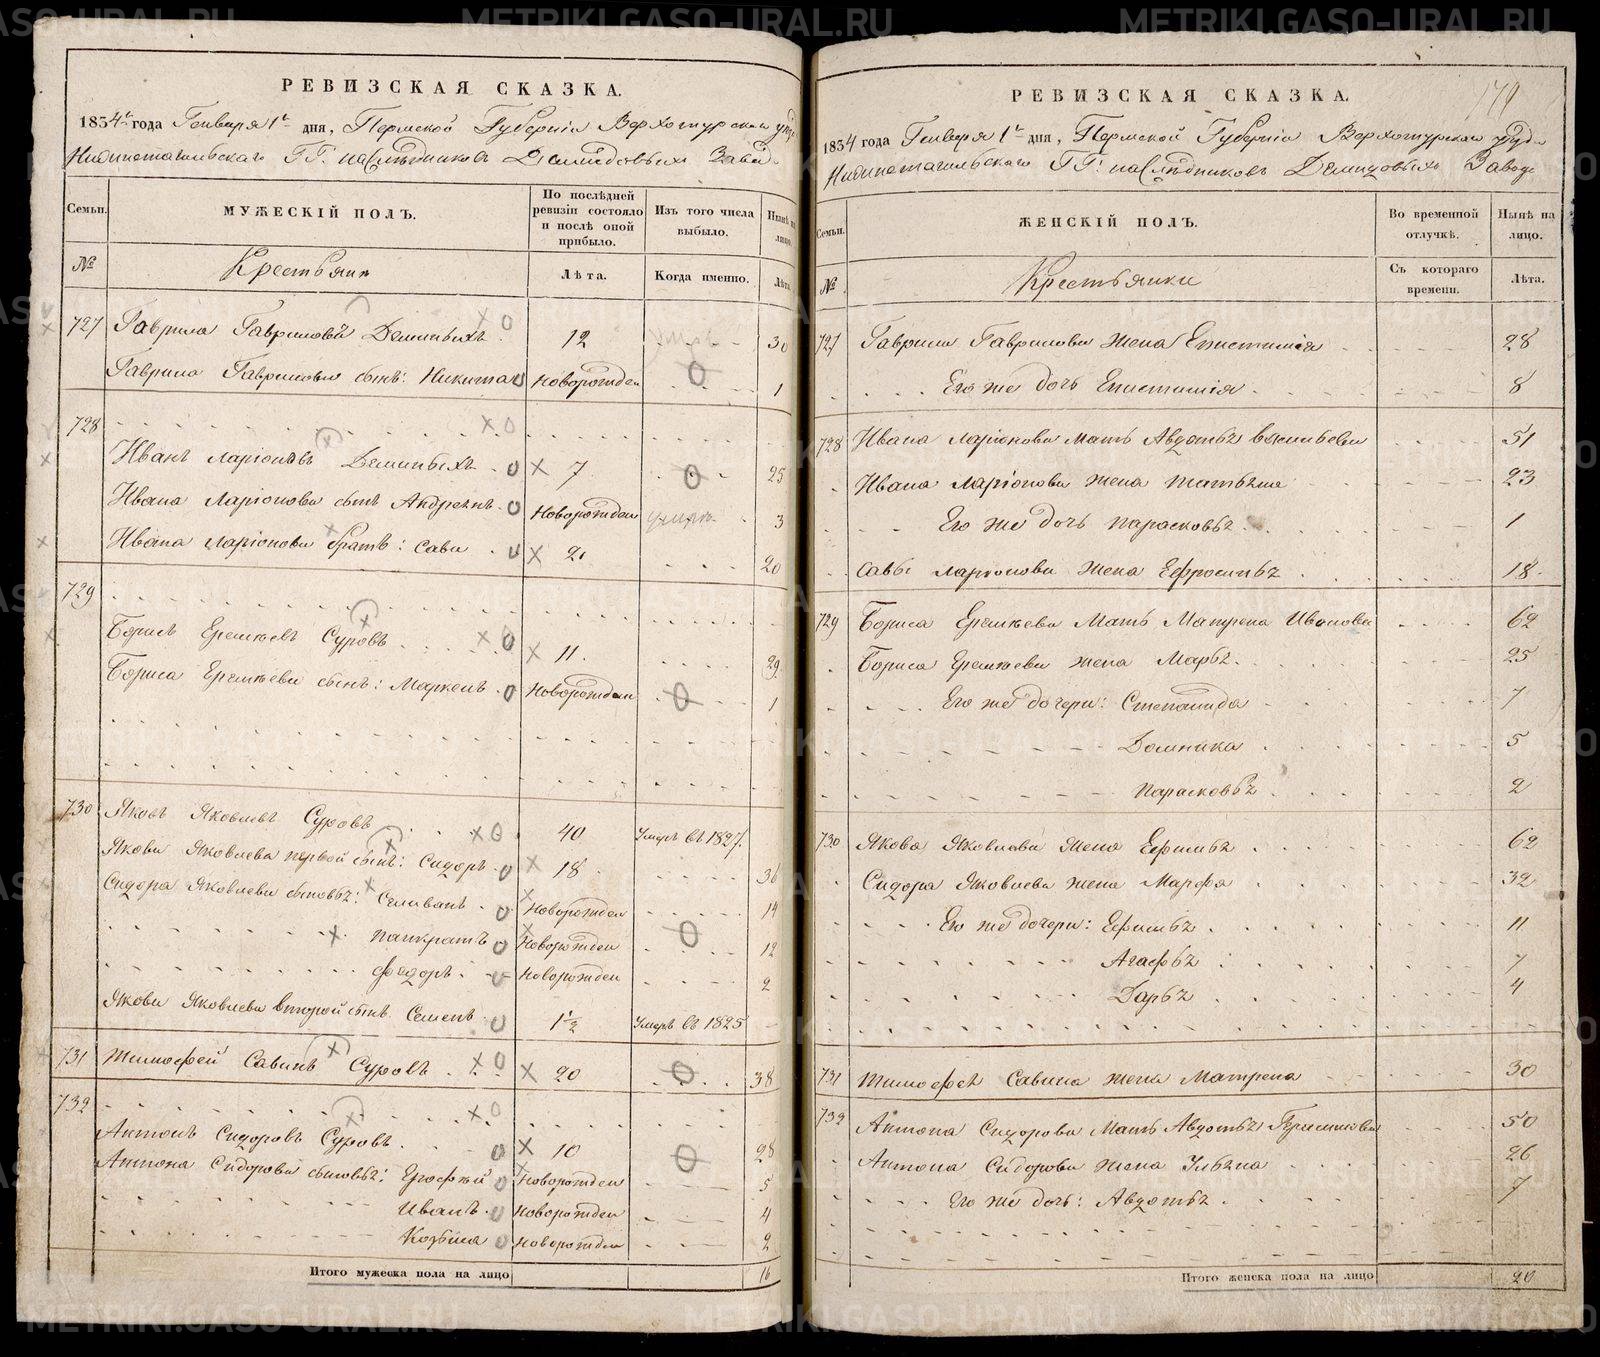 РЕВИЗСКАЯ СКАЗКА.
1834 года Генваря 1 дня, Пермской Губернiи Верхотурскаго
Нижнетагильскаго ГГ: наслѣдниковъ Демидовыхъ Заво
Семьи.
МУЖЕСКІЙ ПОЛЪ.
По послѣдней ревизіи состояло и послѣ оной прибыло.
Изъ того числа выбыло.
№
Крестьяни
Лѣта.
Когда именно.
Лѣта
727 Гаврила Гавриловъ 12 30
Гаврила Гаврилова сынъ: Никита Новорожден 1
728
Иванъ Ларіоновъ 7 25
Ивана Ларіонова сынъ Андреянъ Новорожден умеръ 3
Ивана Ларіонова братъ: Сава 2 20
729
Борисъ Еремѣевъ Суровъ 11. 29
Бориса Еремѣева сынъ: Маркелъ Новорожден 1
730 Яковъ Яковлевъ Суровъ 40 Умеръ въ 1827.
Якова Яковлева первой сынъ: Сидоръ 18 36
Сидора Яковлева сыновья: Селиванъ Новорожден 14
Панкратъ Новорожден 12
Федоръ Новорожден 2
Якова Яковлева второй сынъ Семенъ 1½ Умеръ въ 1825
731 Тимофей Савинъ Суровъ 20 38
732
Антонъ Сидоровъ Суровъ 10 28
Антона Сидорова сыновья: Ерофѣй Новорожден 5
Иванъ Новорожден 4
Козьма Новорожден 2
Итого мужеска пола на лицо 16
РЕВИЗСКАЯ СКАЗКА.
1834 года Генваря 1 дня, Пермской Губернiи Верхотурскаго
Нижнетагильскаго ГГ: наслѣдниковъ Демидовыхъ Заводе
Семьи.
ЖЕНСКІЙ ПОЛЪ.
Во временной отлучкѣ.
Нынѣ на лицо.
№
Крестьянки
Съ котораго времени.
Лѣта.
727 Гаврила Гаврилова жена Епистимія 28
Его же дочь Епистимія 8
728 Ивана Ларіонова мать Авдотья Васильева 51
Ивана Ларіонова жена Татьяна 23
Его же дочь Парасковья 1
Савы Ларіонова жена Ефросинья 18
729 Бориса Еремѣева Мать Матрена Иванова 62
Бориса Еремѣева жена Марья 25
Его же дочери: Степанида 7
Домника 5
Парасковья 2
730 Якова Яковлева Жена Ефимья 62
Сидора Яковлева жена Марфа 32
Его же дочери: Ефимья 11
Агафья 7
Дарья 4
731 Тимофея Савина жена Матрена 30
732 Антона Сидорова Мать Авдотья 50
Антона Сидорова жена Ульяна 26
Его же дочь: Авдотья 7
Итого женска пола на лицо 20
METRIKI.GASO-URAL.RU